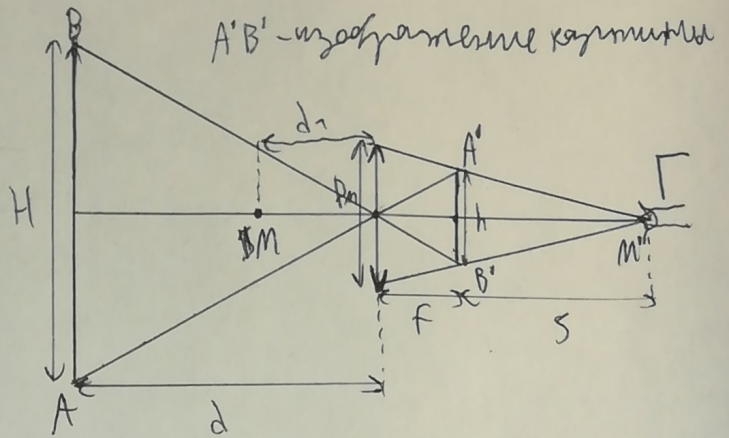 B
A'B' - изображение картины
d1
A'
Г
H
Dм
h
M
M'
B'
F
S
A
d